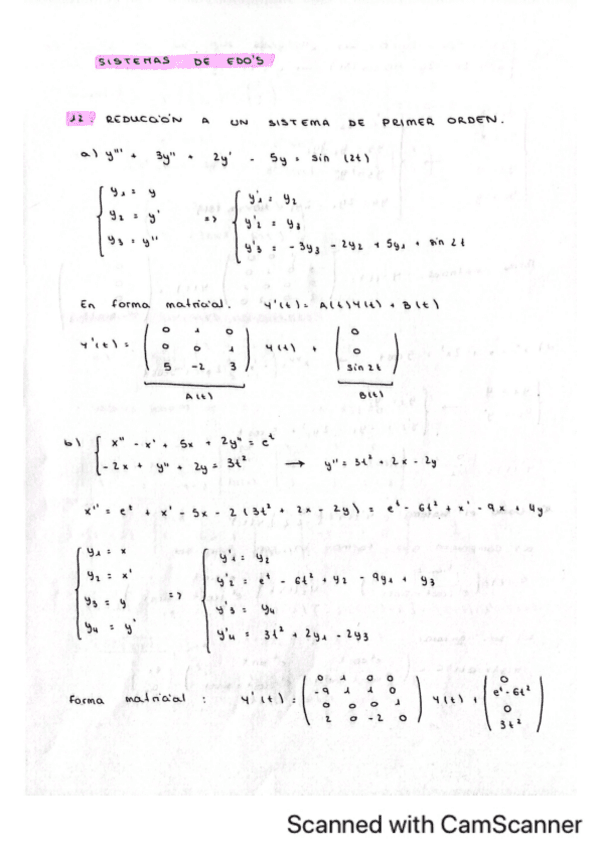 SISTEMAS DE EDO'S
12. REDUCCIÓN A UN SISTEMA DE PRIMER ORDEN.
a) y''' + 3y'' + 2y' - 5y = sin (2t)
y₁ = y
y₂ = y'
y₃ = y''
=>
y'₁ = y₂
y'₂ = y₃
y'₃ = -3y₃ - 2y₂ + 5y₁ + sin 2t
En forma matricial. Y'(t) = A(t)Y(t) + B(t)
Y'(t) =
0 1 0
0 0 1
5 -2 3
Y(t) +
0
0
sin 2t
A(t)
B(t)
b) x'' - x' + 5x + 2y'' = eᵗ
-2x + y'' + 2y = 3t² → y'' = 3t² + 2x - 2y
x'' = eᵗ + x' - 5x - 2(3t² + 2x - 2y) = eᵗ - 6t² + x' - 9x + 4y
y₁ = x
y₂ = x'
y₃ = y
y₄ = y'
=>
y'₁ = y₂
y'₂ = eᵗ - 6t² + y₂ - 9y₁ + y₃
y'₃ = y₄
y'₄ = 3t² + 2y₁ - 2y₃
Forma matricial : Y'(t) =
0 1 0 0
-9 1 1 0
0 0 0 1
2 0 -2 0
Y(t) +
0
eᵗ - 6t²
0
3t²
Scanned with CamScanner